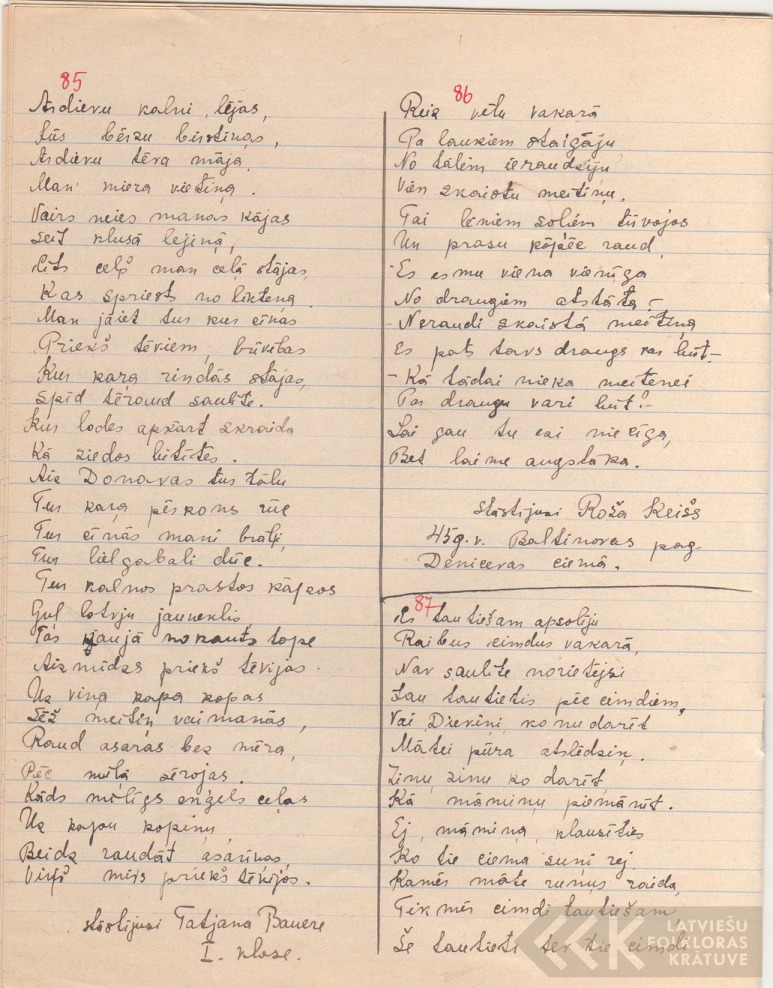 85
Ardievu kalni, lējas,
Jūs bērzu birstiņas,
Ardievu tēva māja,
Man miera vietiņa.
Vairs neies manas kājas
šeit klusā lejiņā,
Cits ceļš man ceļā stājas,
Kas spriests no likteņa.
Man jāiet tur kur cīņas
Priekš tēviem, brīvības
Kur kara rindās stājas,
Spīd tēraud saulīte.
Kur lodes apkārt skraida
Kā ziedos bitītes.
Aiz Donavas tur tālu
Tur kaŗa pērkons rūc
Tur cīnās mani brāļi,
Tur lielgabali dūc.
Tur kalnos prastos kāpos
Guļ latvju jaunekļis,
Tas kaujā nokauts tope
Aizmidzis priekš tēvijas.
Uz viņa kapa kopas
Sēž meitiņ vaimanās,
Raud asarās bez mēra,
Pēc mīļā sērojas.
Kāds mīlīgs eņģels ceļas
Uz kapu kopiņu,
Beidz raudāt asariņas,
Viņš miris priekš tēvijas.
stāstijusi Tatjana Bauere
I. klase.
86
Reiz vēlu vakarā
Pa laukiem staigāju
No tālēm ieraudzīju
Vien skaistu meitiņu.
Tai lēniem soļiem tuvojos
Un prasu kāpēc raud,
-Es esmu viena vienīga
No draugiem atstāta!-
-Neraudi skaistā meitiņa
Es pats tavs draugs var būt.-
-Kā tādai nieka meitenei
Par draugu vari būt!-
Lai gan tu esi niecīga,
Bet laime augstāka.
stāstijusi Roža Keišs
45g.v. Baltinavas pag.
Deniceva ciemā.
87
Es tautiešam apsolīju
Raibus cimdus vakarā,
Nav saulīte norietējsi
Jau tautietis pēc cimdiem,
Vai, Dieviņi, ko nu darīt
Mātei pūra atslēdziņ.
Zinu, zinu ko darīt,
Kā māmiņu piemānīt.
Ej, māmiņa, klausīties
Ko tie ciema suņi rej,
Kamēr māte suņus raida,
Tikmēr cimdi tautiešam
Še tautieti tev tie cimdi
LATVIEŠU
FOLKLORAS
KRĀTUVE